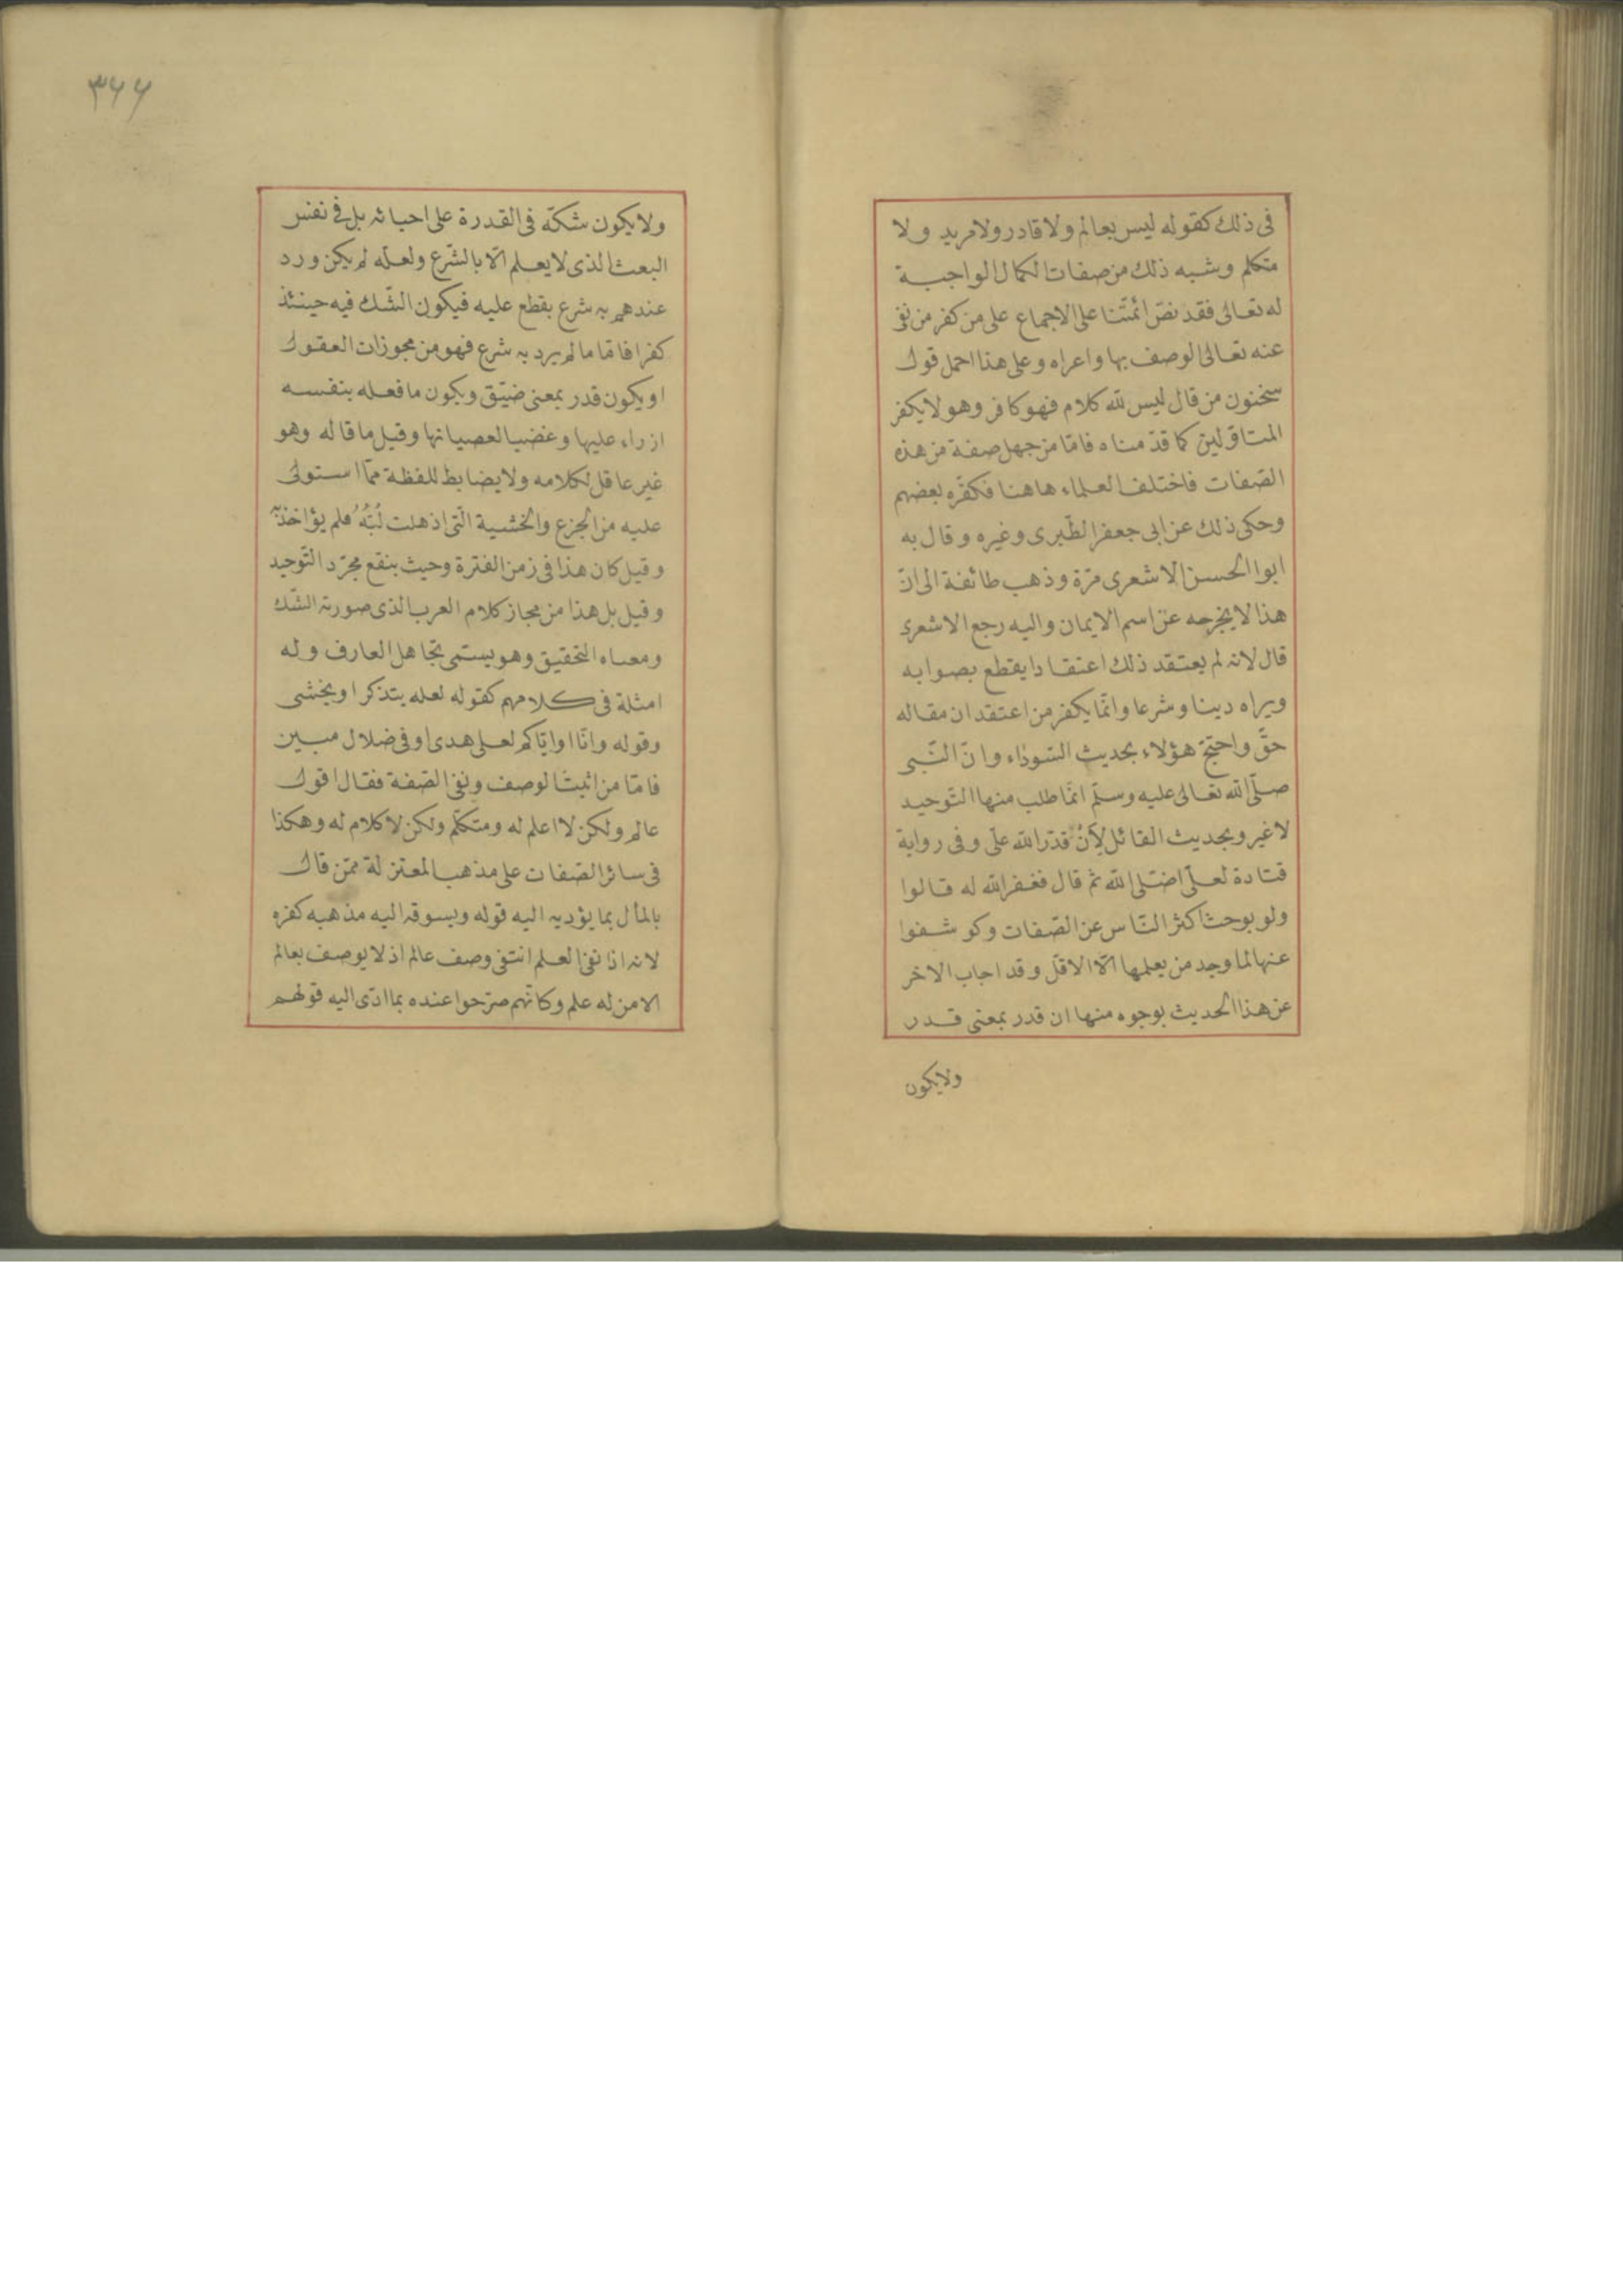 فى ذلك كقوله ليس بعالم ولا قادر ولا مريد ولا
متكلم وشبه ذلك من صفات الكمال الواجبة
له تعالى فقد نصّ ائمّتنا على الاجماع على من كفر من نفى
عنه تعالى الوصف بها واعراه وعلى هذا احمل قول
سحنون من قال ليس لله كلام فهو كافر وهو لا يكفر
المتاوّلين كما قدّمناه فامّا من جهل صفة من هذه
الصّفات فاختلف العلماء هاهنا فكفّره بعضهم
وحكى ذلك عن ابى جعفر الطّبرى وغيره وقال به
ابوا الحسن الاشعرى مرّة وذهب طائفة الى انّ
هذا لا يخرجه عن اسم الايمان واليه رجع الاشعرى
قال لانه لم يعتقد ذلك اعتقادا يقطع بصوابه
ويراه دينا وشرعا وانّما يكفر من اعتقد ان مقاله
حقّ واحتجّ هؤلاء بحديث السّوداء وانّ النّبى
صلّى الله تعالى عليه وسلّم انّما طلب منها التّوحيد
لا غير وبحديث القائل لأنْ قدّر الله علىّ وفى رواية
قتادة لعلّى اضلّ الله ثم قال فغفر الله له قالوا
ولو بوحث اكثر النّاس عن الصّفات وكوشفوا
عنها لما وجد من يعلمها الّا الاقلّ وقد اجاب الاخر
عن هذا الحديث بوجوه منها ان قدر بمعنى قدر
ولا يكون
٣٦٦
ولا يكون شكّه فى القدرة على احيائه بل فى نفس
البعث الذى لا يعلم الّا بالشّرع ولعلّه لم يكن ورد
عندهم به شرع يقطع عليه فيكون الشّك فيه حينئذ
كفرا فامّا ما لم يرد به شرع فهو من مجوزات العقول
او يكون قدر بمعنى ضيّق ويكون ما فعله بنفسه
ازراء عليها وغضبا لعصيانها وقيل ما قاله وهو
غير عاقل لكلامه ولا يضابط للفظة ممّا استولى
عليه من الجزع والخشية الّتى اذهلت لُبَّهُ فلم يؤاخذ به
وقيل كان هذا فى زمن الفترة وحيث ينفع مجرّد التّوحيد
وقيل بل هذا من مجاز كلام العرب الذى صورته الشّك
ومعناه التحقيق وهو يسمّى تجاهل العارف وله
امثلة فى كلامهم كقوله لعله يتذكر او يخشى
وقوله وانّا او ايّاكم لعلى هدى او فى ضلال مبين
فامّا من اثبت الوصف ونفى الصّفة فقال اقول
عالم ولكن لا اعلم له ومتكلّم ولكن لا كلام له وهكذا
فى سائر الصّفات على مذهب المعتزلة ممّن قال
بالمأل بما يؤديه اليه قوله ويسوقه اليه مذهبه كفره
لانه اذا نفى العلم انتفى وصف عالم اذ لا يوصف بعالم
الا من له علم وكانّهم صرّحوا عنده بما ادّى اليه قولهم